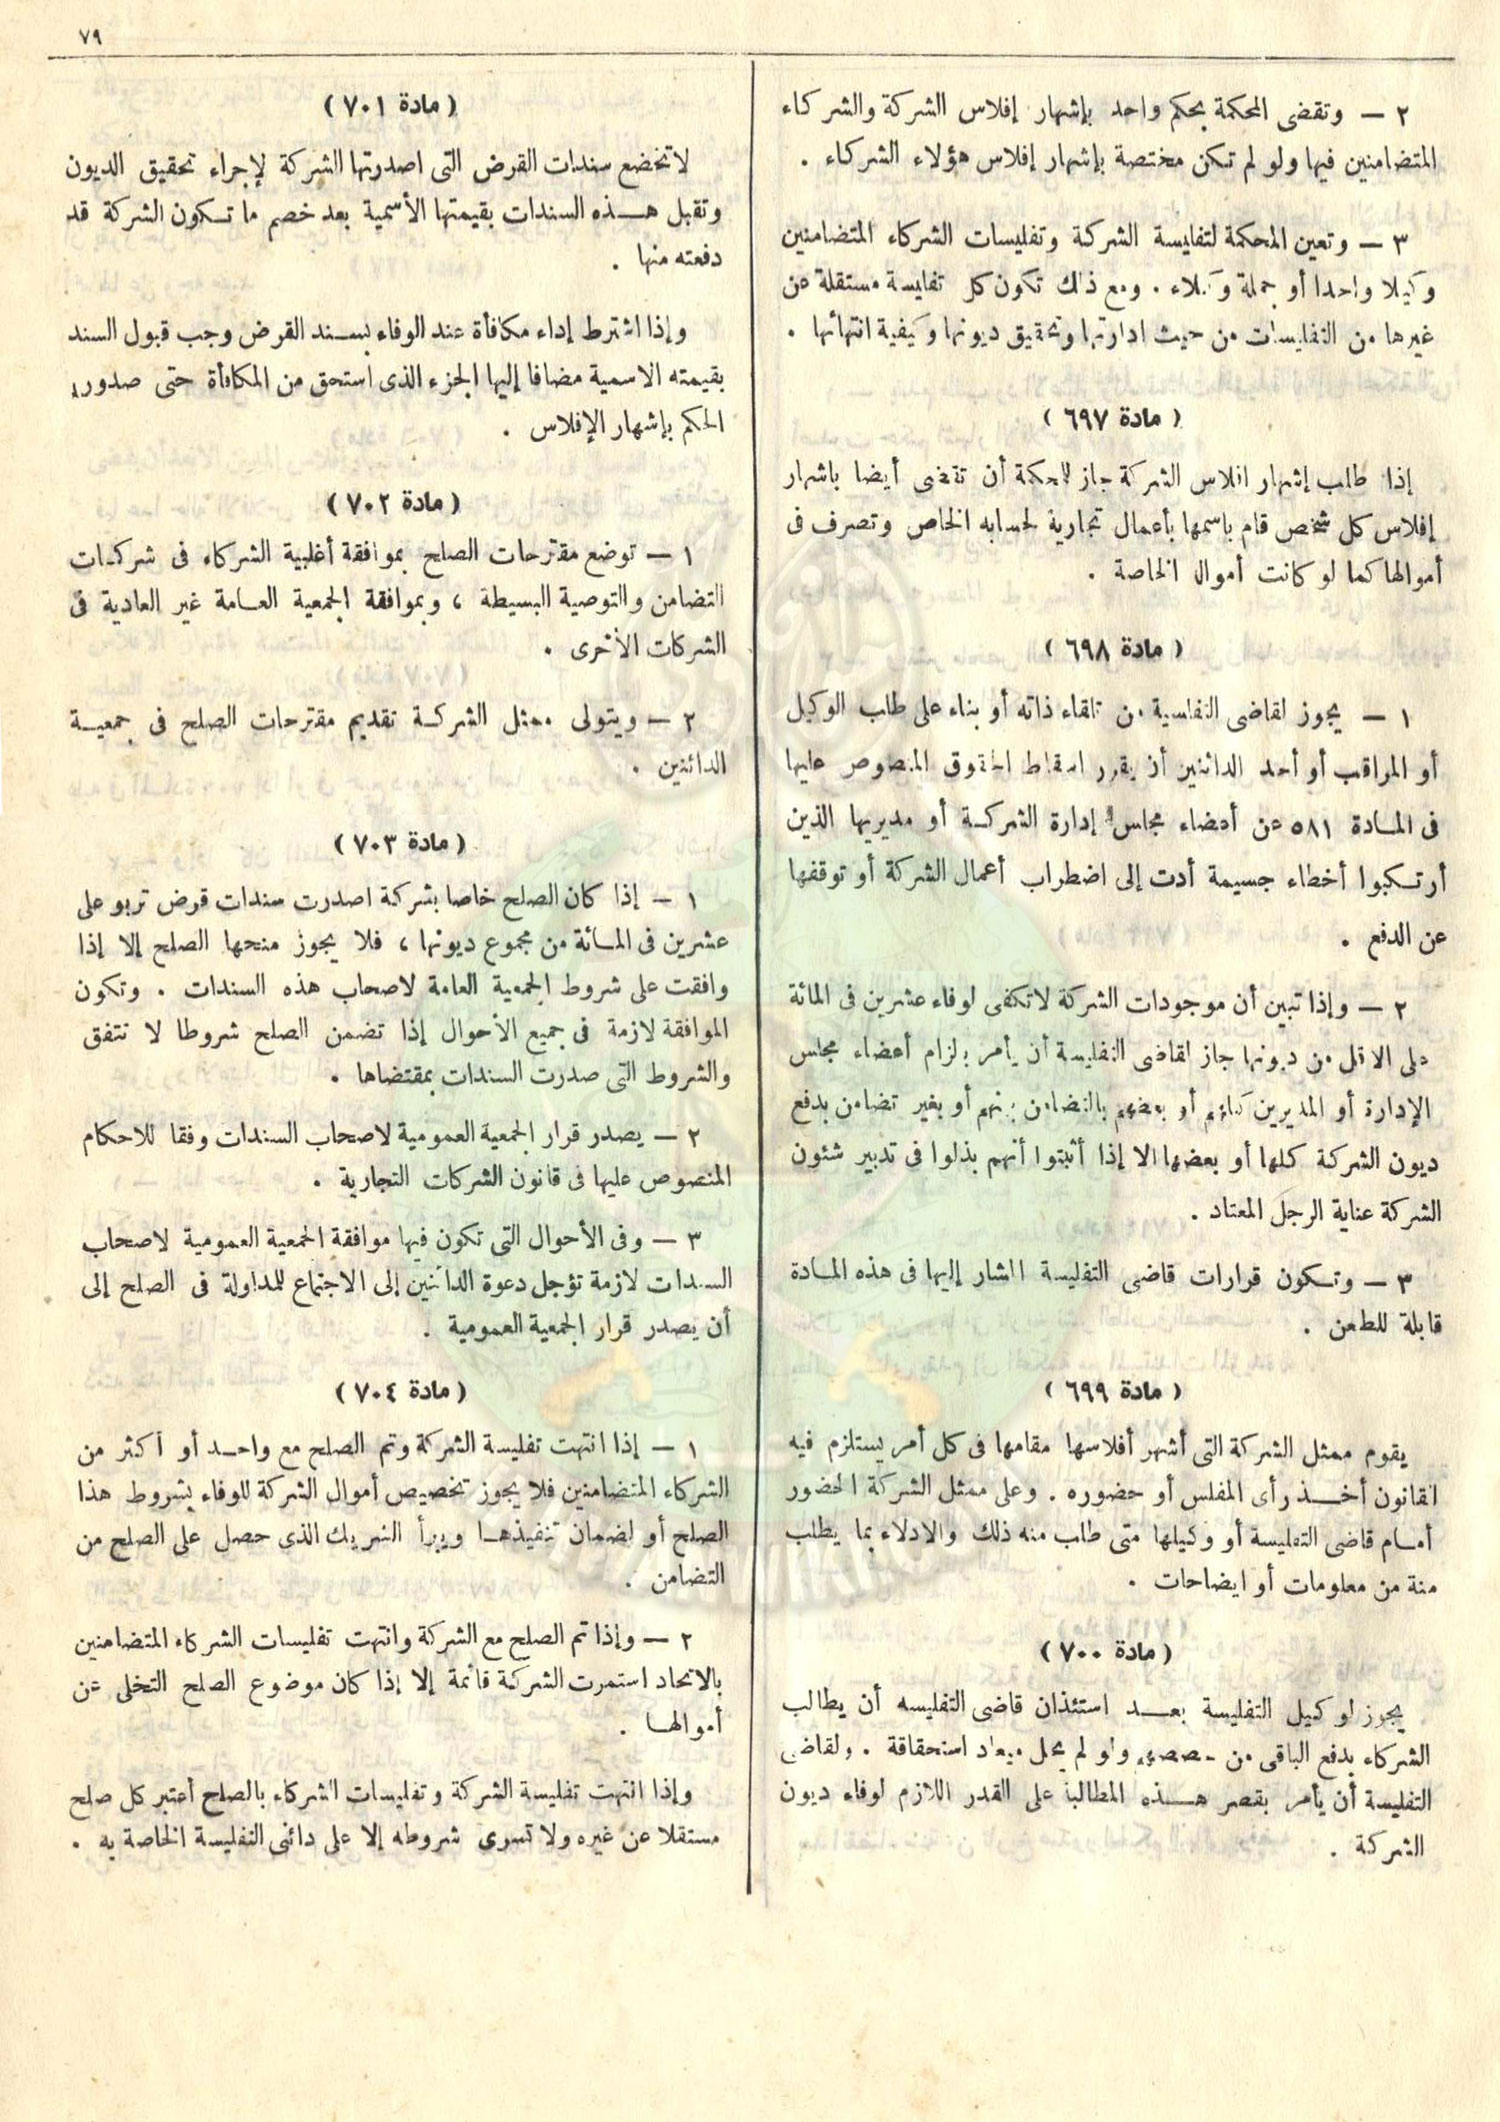 ٧٩
٢ — وتقضى المحكمة بحكم واحد بإشهار إفلاس الشركة والشركاء
المتضامنين فيها ولو لم تكن مختصة بإشهار إفلاس هؤلاء الشركاء .
٣ — وتعين المحكمة لتفليسة الشركة وتفليسات الشركاء المتضامنين
وكيلا واحدا أو جملة وكلاء . ومع ذلك تكون كل تفليسة مستقلة عن
غيرها من التفليسات من حيث ادارتها وتحقيق ديونها وكيفية انتهائها .
( مادة ٦٩٧ )
إذا طلب إشهار افلاس الشركة جاز للمحكمة أن تقضى أيضا باشهار
إفلاس كل شخص قام باسمها بأعمال تجارية لحسابه الخاص وتصرف فى
أموالها كما لو كانت أموال الخاصة .
( مادة ٦٩٨ )
١ — يجوز لقاضى التفليسة من تلقاء ذاته أو بناء على طلب الوكيل
أو المراقب أو أحد الدائنين أن يقرر اسقاط الحقوق المنصوص عليها
فى المادة ٥٨١ عن أعضاء مجلس إدارة الشركة أو مديريها الذين
أرتكبوا أخطاء جسيمة أدت إلى اضطراب أعمال الشركة أو توقفها
عن الدفع .
٢ — وإذا تبين أن موجودات الشركة لاتكفى لوفاء عشرين فى المائة
على الاقل من ديونها جاز لقاضى التفليسة أن يأمر بالزام أعضاء مجلس
الإدارة أو المديرين كلهم أو بعضهم بالتضامن بينهم أو بغير تضامن بدفع
ديون الشركة كلها أو بعضها الا إذا أثبتوا أنهم بذلوا فى تدبير شئون
الشركة عناية الرجل المعتاد .
٣ — وتكون قرارات قاضى التفليسة المشار إليها فى هذه المادة
قابلة للطعن .
( مادة ٦٩٩ )
يقوم ممثل الشركة التى أشهر أفلاسها مقامها فى كل أمر يستلزم فيه
القانون أخذ رأى المفلس أو حضوره . وعلى ممثل الشركة الحضور
أمام قاضى التفليسة أو وكيلها متى طلب منه ذلك والادلاء بما يطلب
منة من معلومات أو ايضاحات .
( مادة ٧٠٠ )
يجوز لوكيل التفليسة بعد استئذان قاضى التفليسه أن يطالب
الشركاء بدفع الباقى من حصصهم ولو لم يحل ميعاد استحقاقة . ولقاضى
التفليسة أن يأمر بقصر هذه المطالبة على القدر اللازم لوفاء ديون
الشركة .
( مادة ٧٠١ )
لاتخضع سندات القرض التى اصدرتها الشركة لإجراء تحقيق الديون
وتقبل هذه السندات بقيمتها الأسمية بعد خصم ما تكون الشركة قد
دفعته منها .
وإذا اشترط إداء مكافأة عند الوفاء بسند القرض وجب قبول السند
بقيمته الاسمية مضافا إليها الجزء الذى استحق من المكافأة حتى صدور
الحكم بإشهار الإفلاس .
( مادة ٧٠٢ )
١ — توضع مقترحات الصلح بموافقة أغلبية الشركاء فى شركات
التضامن والتوصية البسيطة ، وبموافقة الجمعية العامة غير العادية فى
الشركات الأخرى .
٢ — ويتولى ممثل الشركة تقديم مقترحات الصلح فى جمعية
الدائنين .
( مادة ٧٠٣ )
١ — إذا كان الصلح خاصا بشركة اصدرت سندات قرض تربو على
عشرين فى المائة من مجموع ديونها ، فلا يجوز منحها الصلح إلا إذا
وافقت على شروط الجمعية العامة لاصحاب هذه السندات . وتكون
الموافقة لازمة فى جميع الأحوال إذا تضمن الصلح شروطا لا تتفق
والشروط التى صدرت السندات بمقتضاها .
٢ — يصدر قرار الجمعية العمومية لاصحاب السندات وفقا للاحكام
المنصوص عليها فى قانون الشركات التجارية .
٣ — وفى الأحوال التى تكون فيها موافقة الجمعية العمومية لاصحاب
السندات لازمة تؤجل دعوة الدائنين إلى الاجتماع للمداولة فى الصلح إلى
أن يصدر قرار الجمعية العمومية .
( مادة ٧٠٤ )
١ — إذا انتهت تفليسة الشركة وتم الصلح مع واحد أو أكثر من
الشركاء المتضامنين فلا يجوز تخصيص أموال الشركة للوفاء بشروط هذا
الصلح أو لضمان تنفيذها ويبرأ الشريك الذى حصل على الصلح من
التضامن .
٢ — وإذا تم الصلح مع الشركة وانتهت تفليسات الشركاء المتضامنين
بالاتحاد استمرت الشركة قائمة إلا إذا كان موضوع الصلح التخلى عن
أموالها .
وإذا انتهت تفليسة الشركة وتفليسات الشركاء بالصلح أعتبر كل صلح
مستقلا عن غيره ولا تسرى شروطه إلا على دائنى التفليسة الخاصة به .